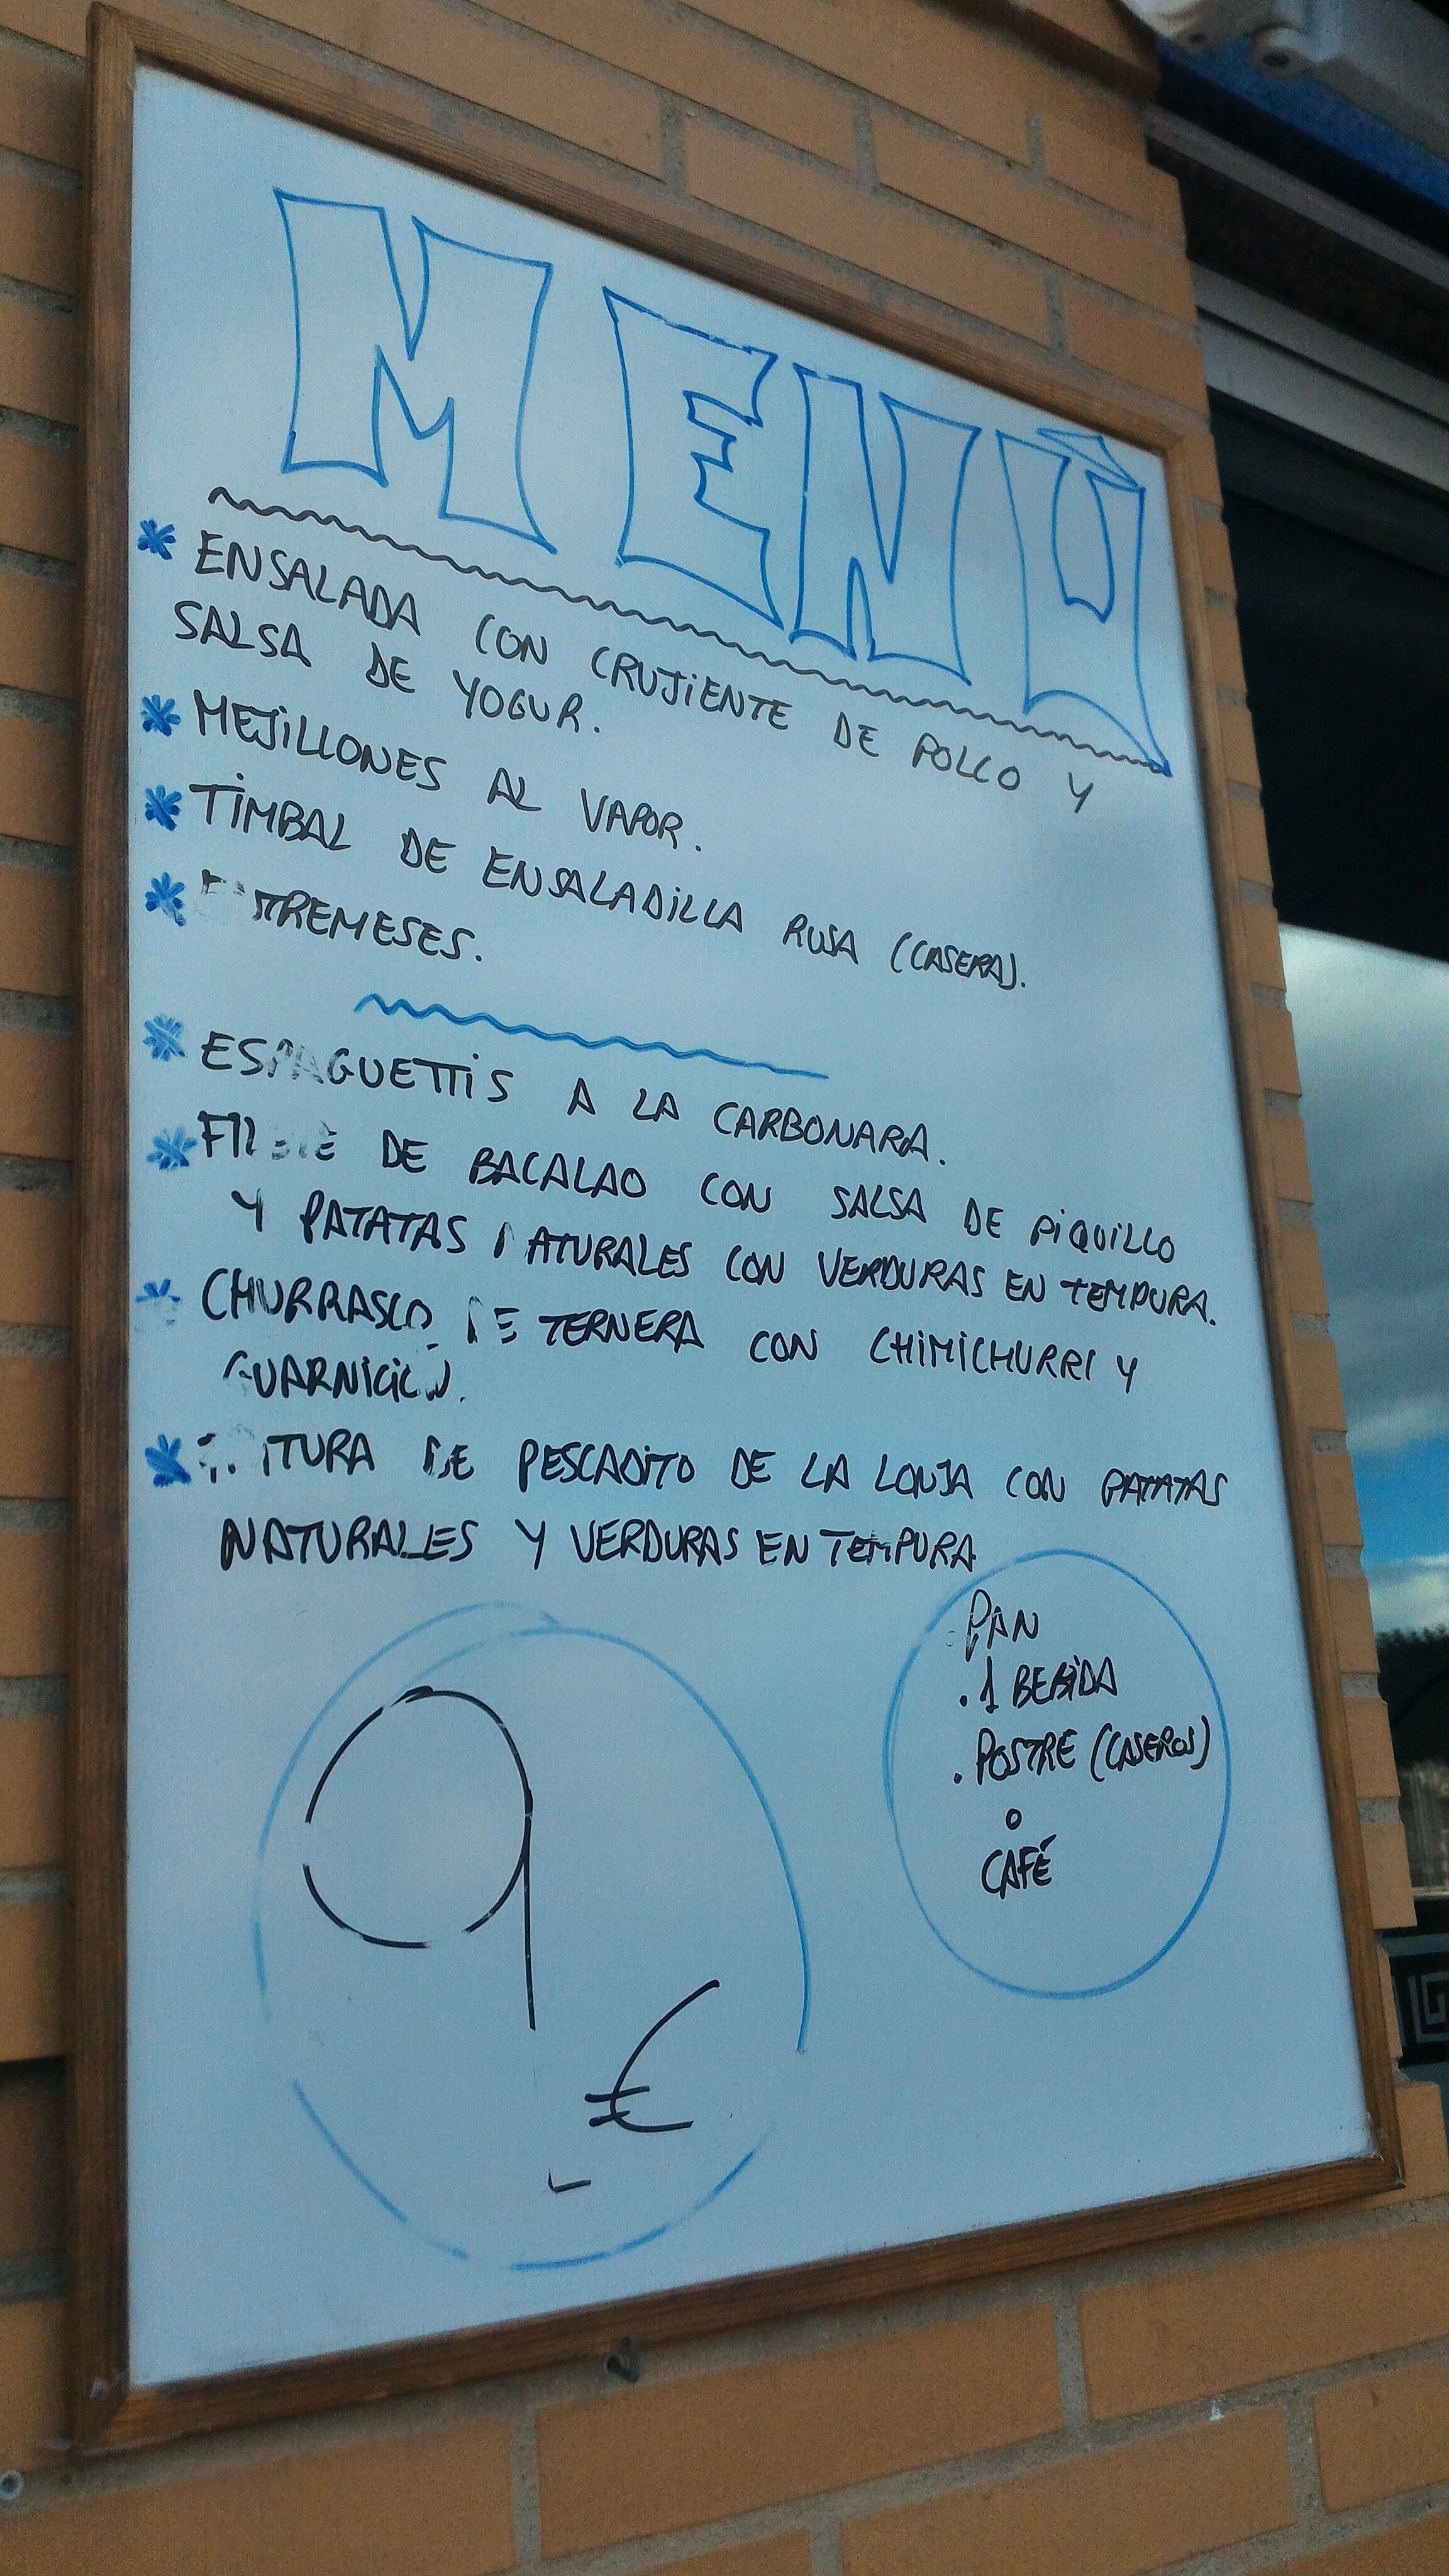 MENÚ
* ENSALADA CON CRUJIENTE DE POLLO Y
SALSA DE YOGUR.
* MEJILLONES AL VAPOR.
* TIMBAL DE ENSALADILLA RUSA (CASERA).
* ENTREMESES.
* ESPAGUETTIS A LA CARBONARA.
* FILETE DE BACALAO CON SALSA DE PIQUILLO
Y PATATAS NATURALES CON VERDURAS EN TEMPURA.
* CHURRASCO DE TERNERA CON CHIMICHURRI Y
GUARNICIÓN.
* FRITURA DE PESCADITO DE LA LONJA CON PATATAS
NATURALES Y VERDURAS EN TEMPURA
. PAN
. 1 BEBIDA
. POSTRE (CASEROS)
o
CAFÉ
9 €